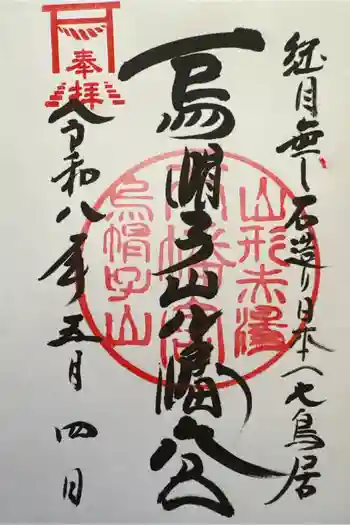 継目無し石造り日本一大鳥居
烏帽子山八幡宮
山形赤湯
八幡宮
烏帽子山
奉拝
令和八年五月四日